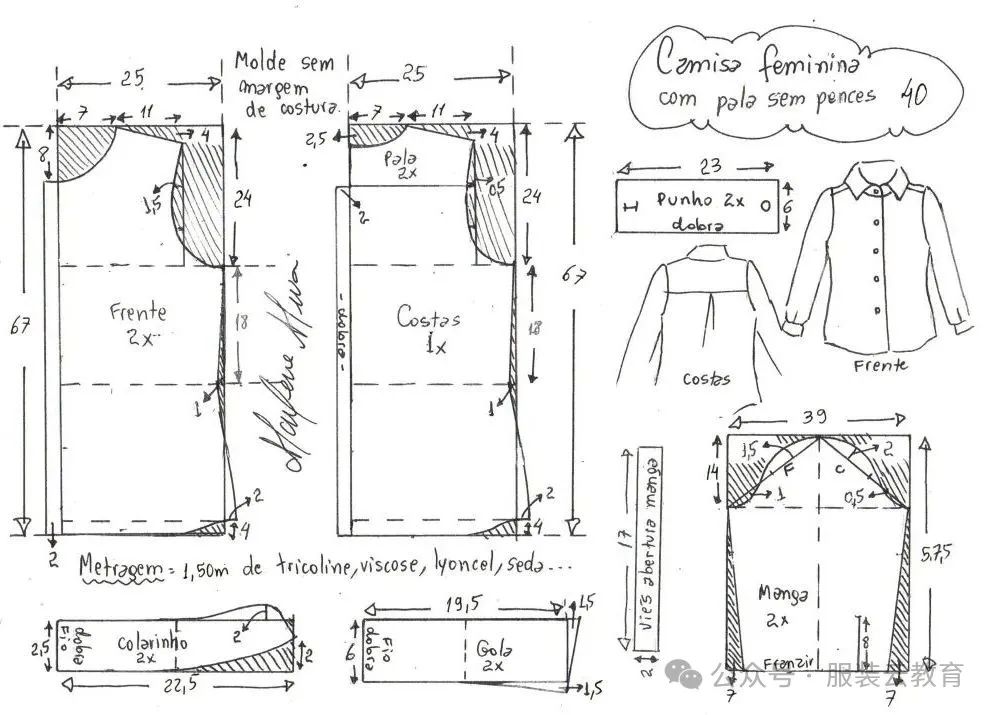 Camisa feminina
com pala sem pences 40
Molde sem
margem
de costura.
25
7
11
4
8
1,5
24
67
18
Frente
2x
1
2
4
2
25
7
11
4
2,5
Pala
2x
0,5
2
24
67
18
Costas
1x
- dobra -
1
2
4
23
Punho 2x
dobra
6
costas
Frente
39
14
1,5
F
C
2
1
0,5
57,5
Manga
2x
Franzir
8
7
7
17
Viés abertura manga
2
Metragem = 1,50m de tricoline, viscose, lyoncel, seda...
2,5
dobra
Fio
Colarinho
2x
2
2
22,5
19,5
1,5
6
dobra
Fio
Gola
2x
1,5
公众号 · 服装云教育